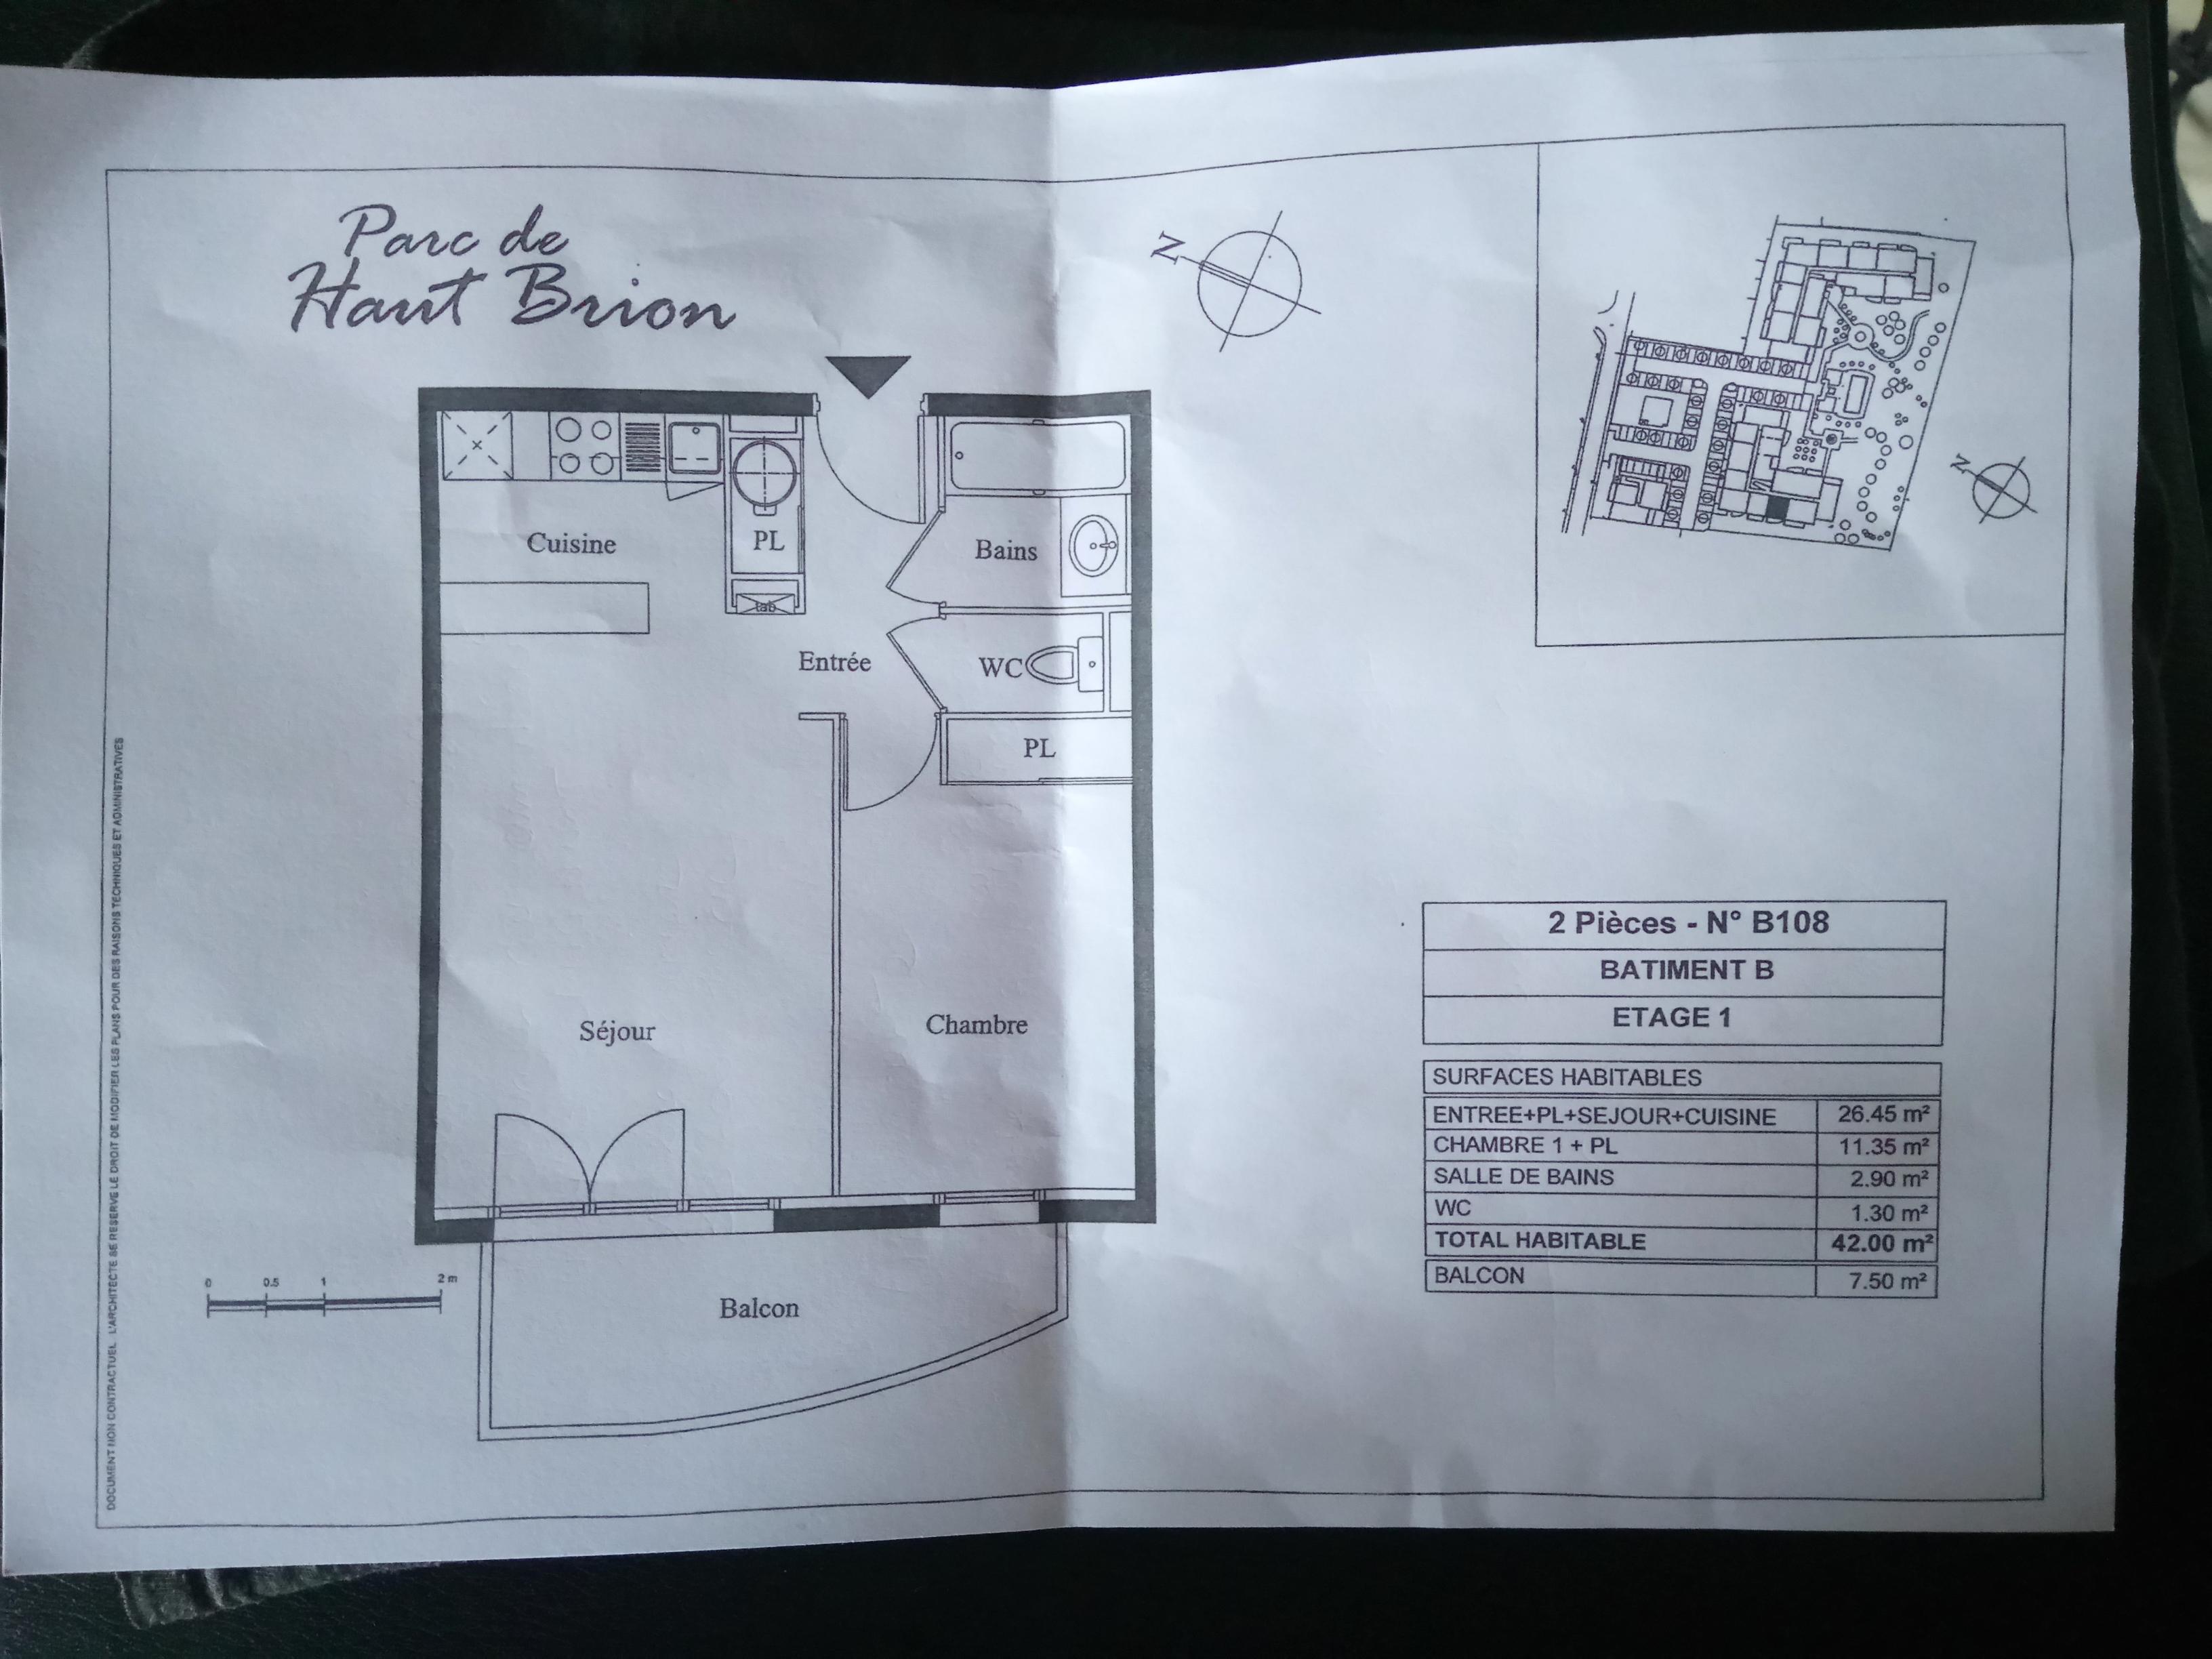 Parc de
Haut Brion
N
N
Cuisine
PL
Bains
tab
Entrée
WC
PL
Séjour
Chambre
Balcon
0 0.5 1 2 m
2 Pièces - N° B108
BATIMENT B
ETAGE 1
SURFACES HABITABLES
ENTREE+PL+SEJOUR+CUISINE 26.45 m²
CHAMBRE 1 + PL 11.35 m²
SALLE DE BAINS 2.90 m²
WC 1.30 m²
TOTAL HABITABLE 42.00 m²
BALCON 7.50 m²
DOCUMENT NON CONTRACTUEL L'ARCHITECTE SE RESERVE LE DROIT DE MODIFIER LES PLANS POUR DES RAISONS TECHNIQUES ET ADMINISTRATIVES